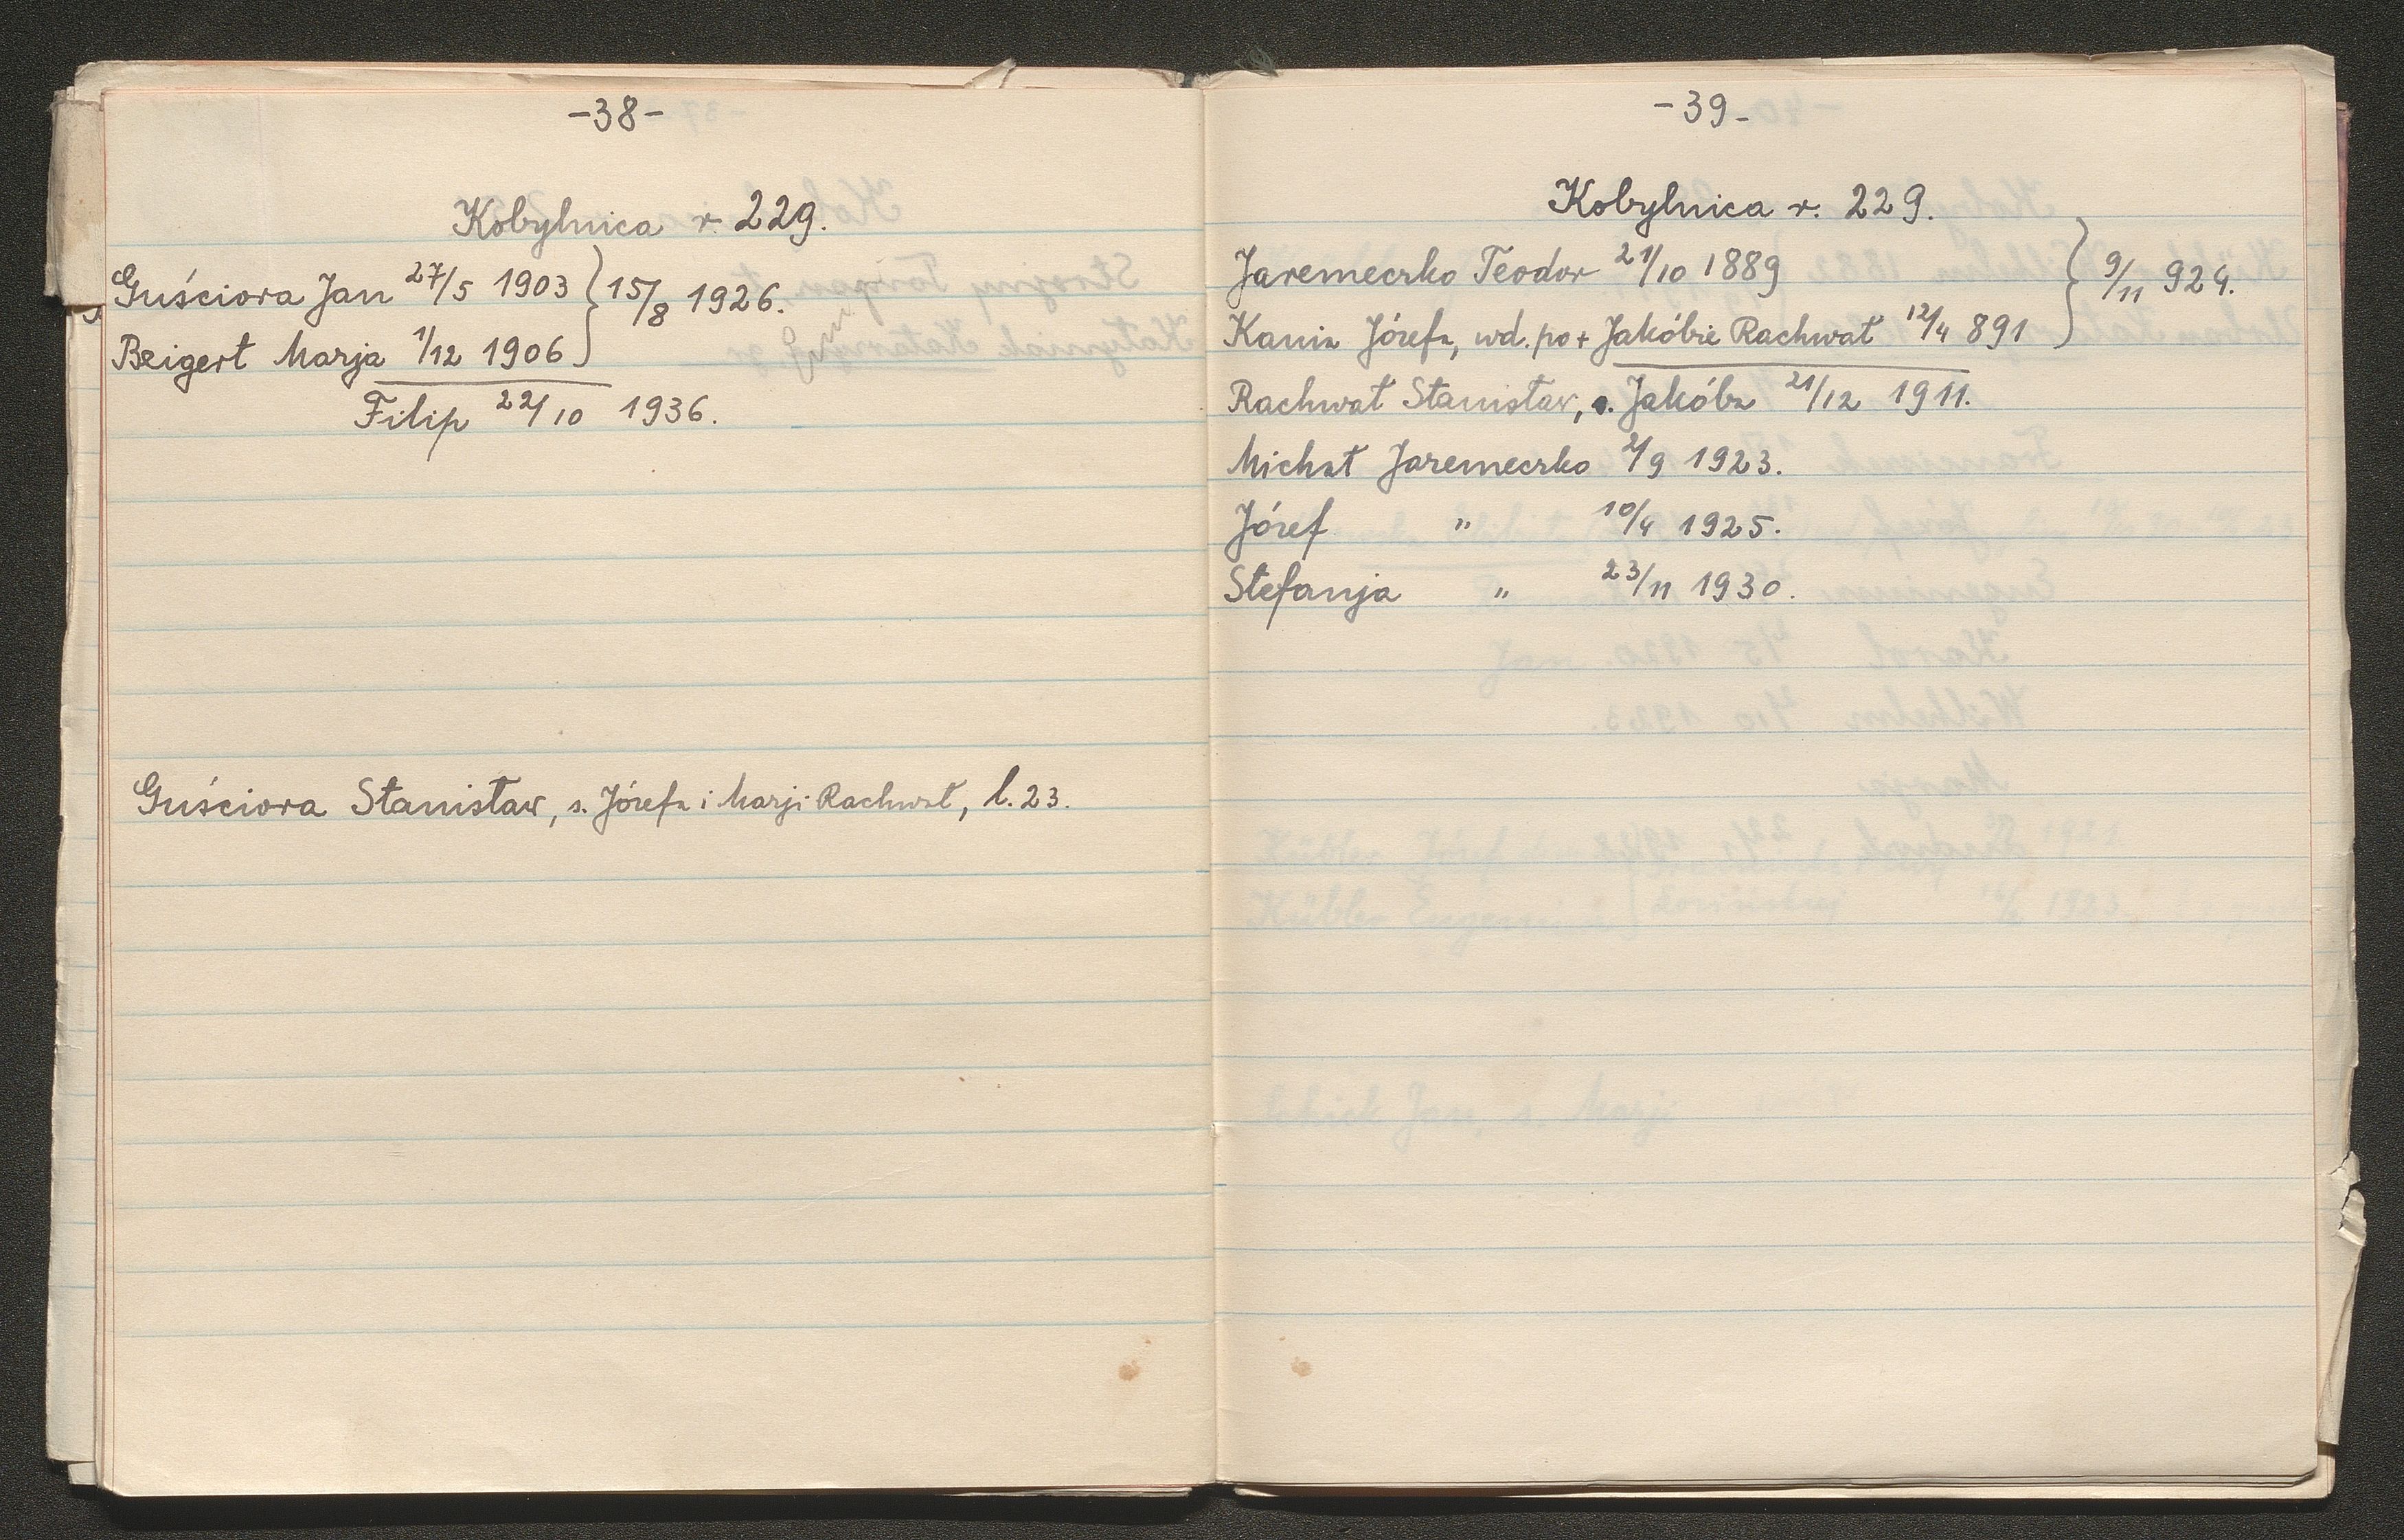 -38-
Kobylnica r. 229.
Guściora Jan 27/5 1903 } 15/8 1926.
Beigert Marja 1/12 1906
Filip 22/10 1936.
Guściora Stanisław, s. Józefa i Marji Rachwał, l. 23.
-39-
Kobylnica r. 229.
Jaremeczko Teodor 21/10 1889 } 9/11 924.
Kania Józefa, wd. po + Jakóbie Rachwał 12/4 891
Rachwał Stanisław, s. Jakóba 21/12 1911.
Michał Jaremeczko 2/9 1923.
Józef " 10/4 1925.
Stefanja " 23/11 1930.